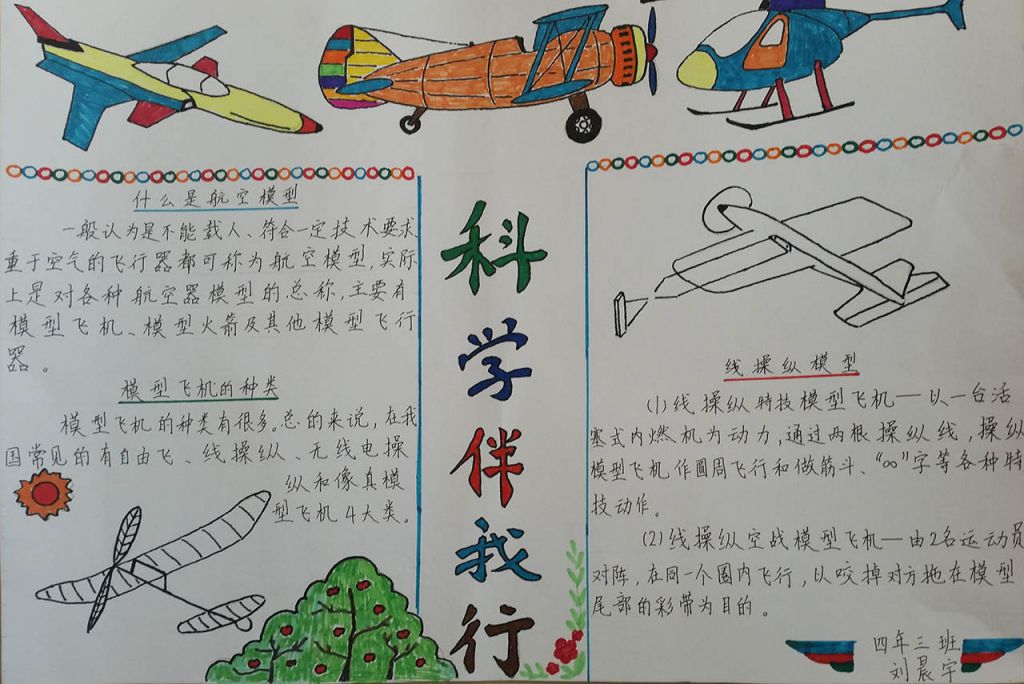 什么是航空模型
一般认为是不能载人、符合一定技术要求
重于空气的飞行器都可称为航空模型,实际
上是对各种航空器模型的总称,主要有
模型飞机、模型火箭及其他模型飞行
器。
模型飞机的种类
模型飞机的种类有很多。总的来说,在我
国常见的有自由飞、线操纵、无线电操
纵和像真模
型飞机4大类。
科
学
伴
我
行
线操纵模型
(1)线操纵特技模型飞机—以一台活
塞式内燃机为动力,通过两根操纵线,操纵
模型飞机作圆周飞行和做筋斗、“∞”字等各种特
技动作。
(2)线操纵空战模型飞机—由2名运动员
对阵,在同一个圈内飞行,以咬掉对方拖在模型
尾部的彩带为目的。
四年三班
刘晨宇